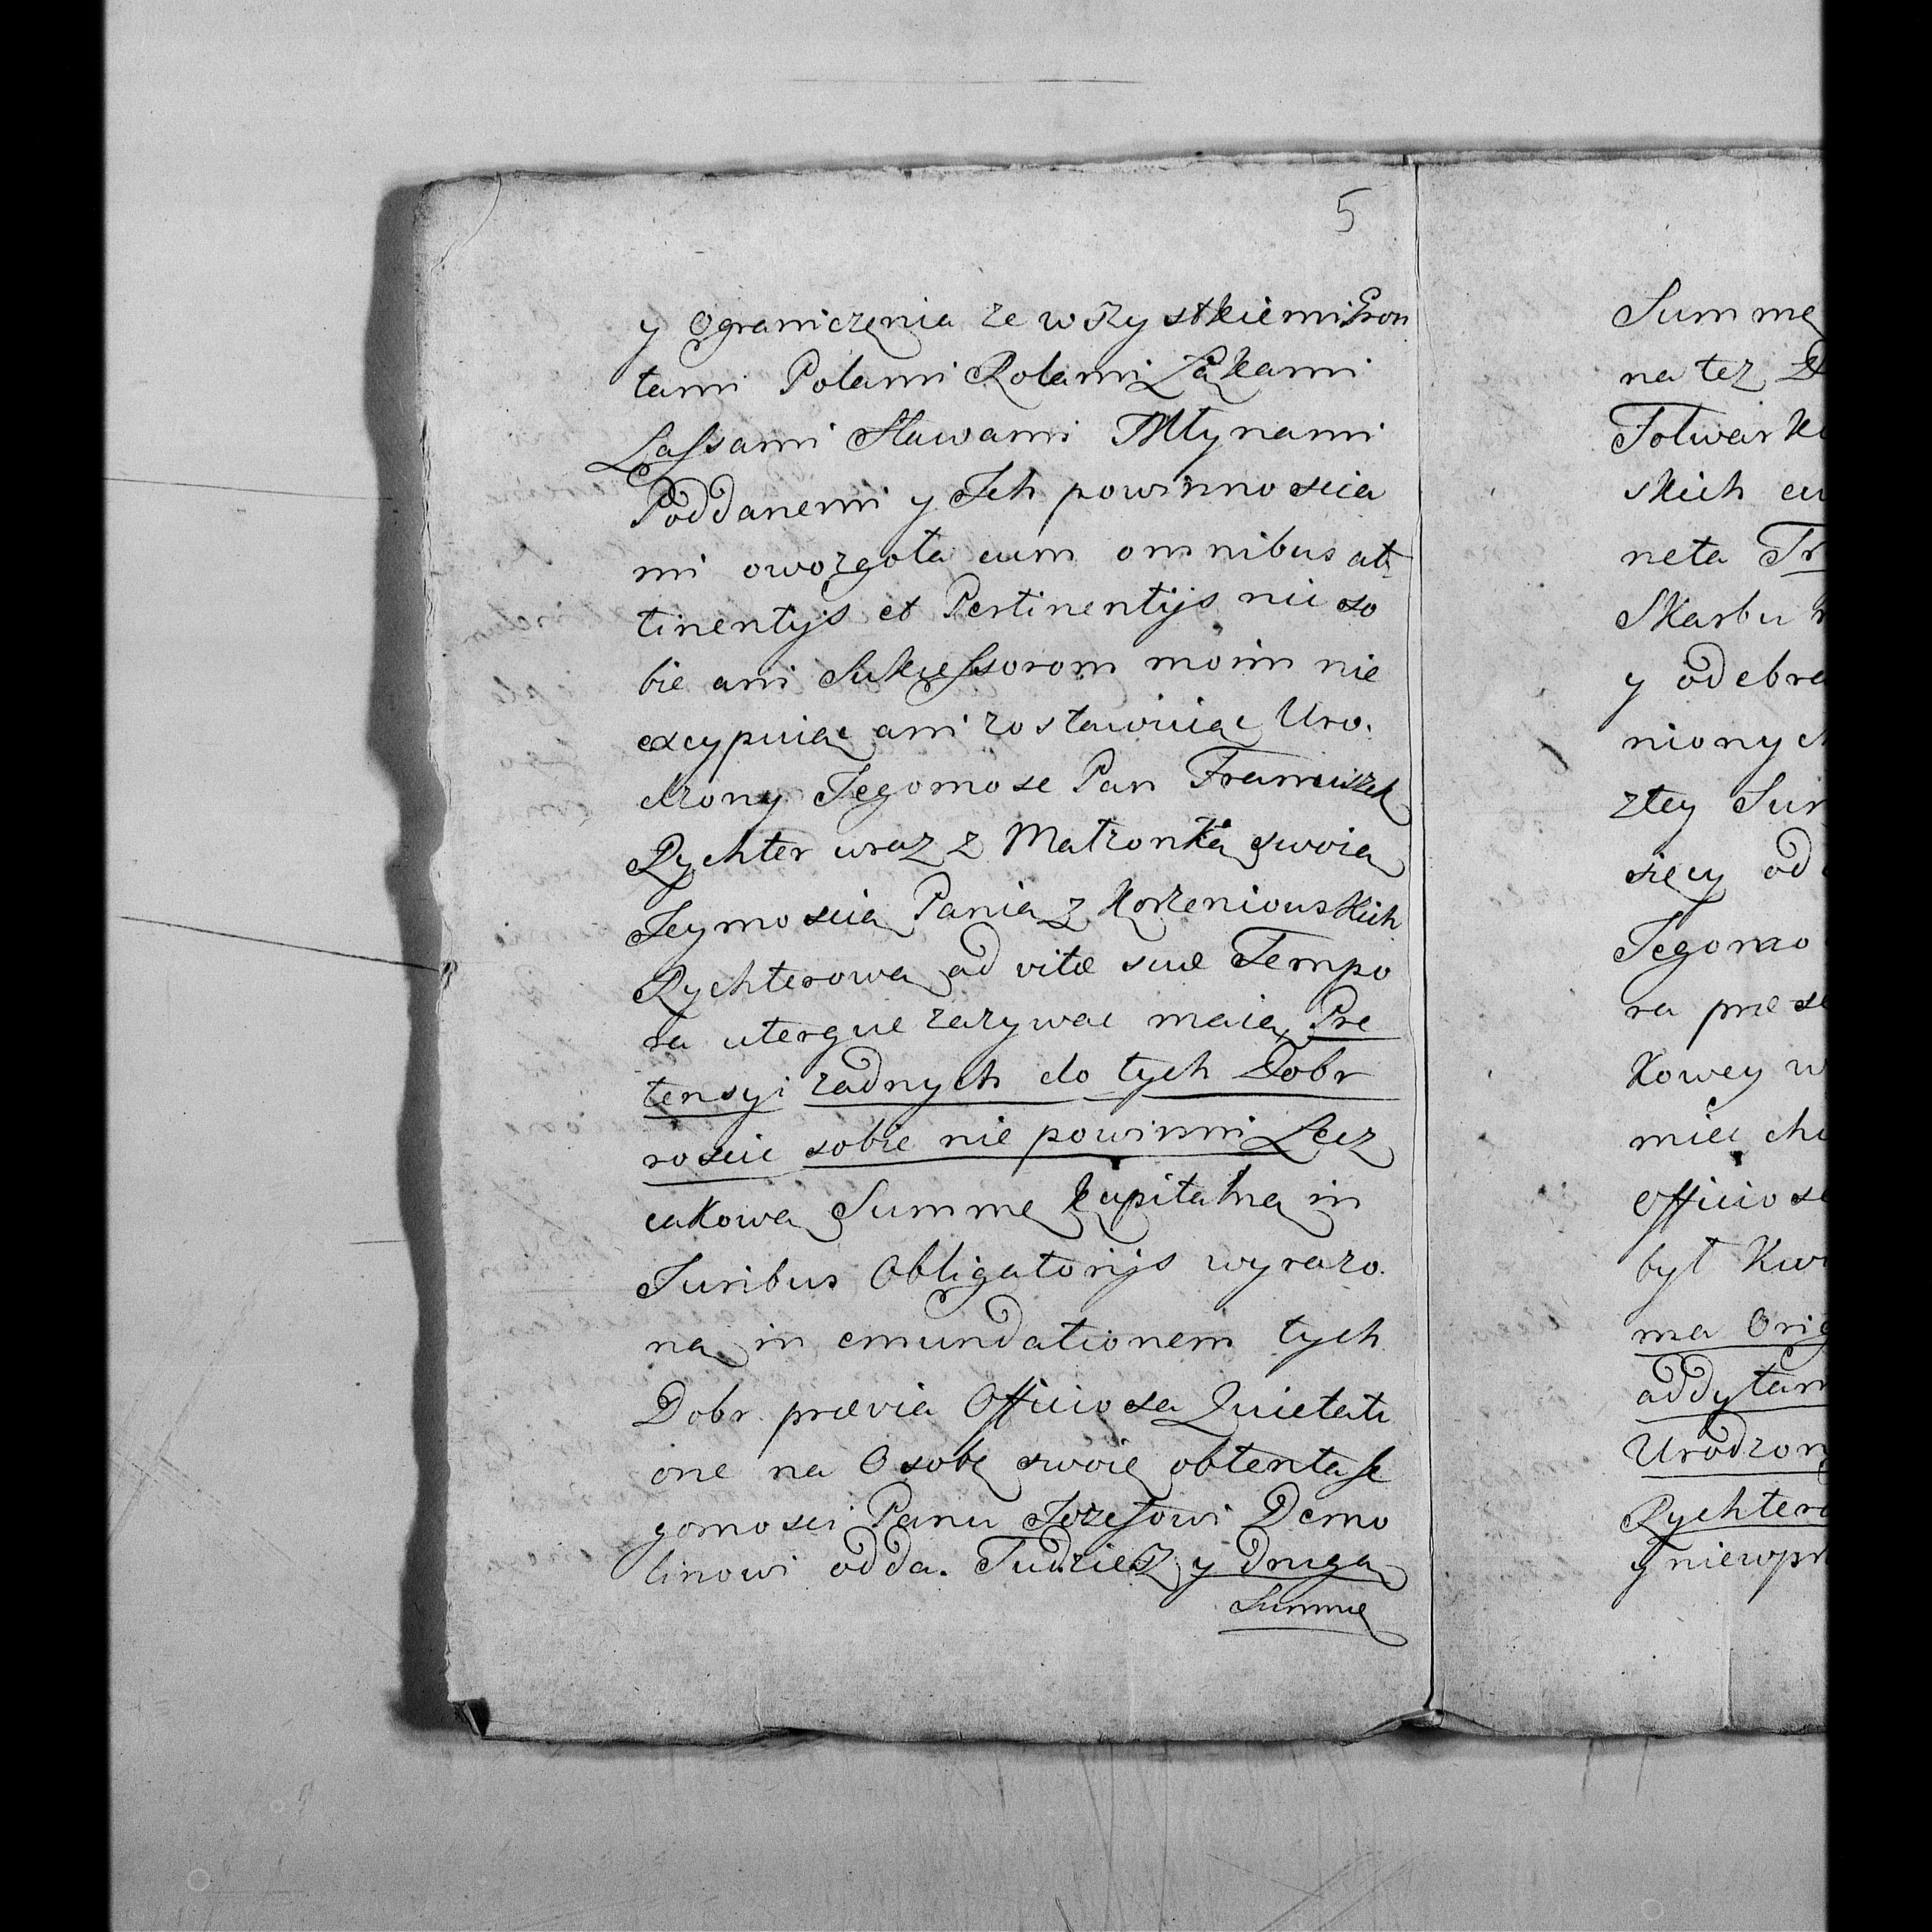 5
y ograniczenia ze wszystkiemi Gron
tami Polami Rolami Łąkami
Lassami Stawami Młynami
Poddanemi y Ich powinnoscia
mi owozgoła cum omnibus at
tinentijs et Pertinentijs nic so
bie ani Sukcessorom moim nie
excypuiąc ani zostawuiąc Uro.
dzony Jegomosc Pan Franciszek
Rychter wraz z Małzonką swoią
Jeymoscią Panią z Korzeniowskich
Rychterową ad vitæ suæ Tempo
ra uterque zazywac maią, Pre
tensyi zadnych do tych Dobr
roscic sobie nie powinni Lecz
cakową Summę kapitalną in
Juribus Obligatorijs wyrazo.
ną in emundationem tych
Dobr prævia Officiosa Quietati
one na Osobę swoię obtenta Je
gomosci Panu Jozefowi Demo
linowi odda. Tudziesz y drugą
Summę
Summę
na tez
Folwark
skich cu
neta
Skarbu
y odebra
nionych
ztey Sum
sięcy od
Jegomo
ra præse
kowey w
miec chc
Officiose
był Kwi
ma Orig
addytam
Urodzon
Rychtero
y niewpr